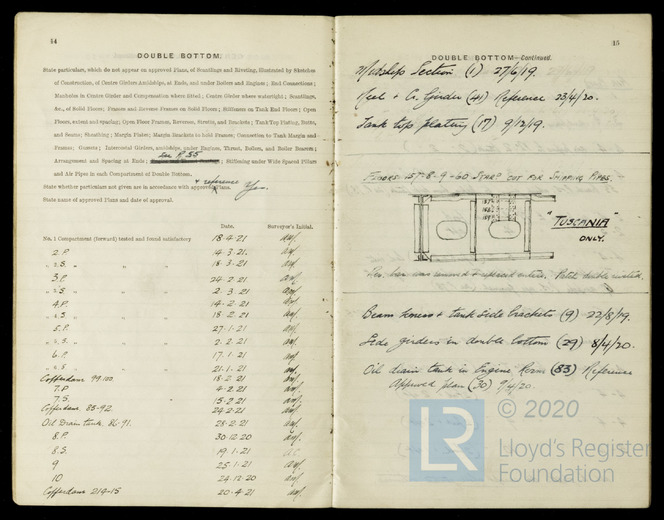 14
DOUBLE BOTTOM.
State particulars, which do not appear on approved Plans, of Scantlings and Riveting, illustrated by Sketches
of Construction, of Centre Girders Amidships, at Ends, and under Boilers and Engines; End Connections;
Manholes in Centre Girder and Compensation where fitted; Centre Girder where watertight; Scantlings,
&c., of Solid Floors; Frames and Reverse Frames on Solid Floors; Stiffeners on Tank End Floors; Open
Floors, extent and spacing; Open Floor Frames, Reverses, Struts, and Brackets; Tank Top Plating, Butts,
and Seams; Sheathing; Margin Plates; Margin Brackets to hold Frames; Connection to Tank Margin and
Frames; Gussets; Intercostal Girders, amidships, under Engines, Thrust, Boilers, and Boiler Bearers;
Arrangement and Spacing at Ends; See P. 55 Stiffening under Wide Spaced Pillars
and Air Pipes in each Compartment of Double Bottom.
State whether particulars not given are in accordance with approved + reference Plans. Yes.
State name of approved Plans and date of approval.
Date. Surveyor's Initial.
No. 1 Compartment (forward) tested and found satisfactory 18-4-21
2 P. 14-3-21.
" 2 S. " " " 18-3-21
3 P. 24-2-21
" 3 S. " " " 2-3-21
4 P. 14-2-21
" 4 S. " " " 18-2-21
5 P. 27-1-21
" " S. " " " 2-2-21
6 P. 17-1-21
" " S. " " 21-1-21
Cofferdam 99-100. 18-2-21
7. P 4-2-21
7. S. 15-2-21
Cofferdam 85-92. 24-2-21
Oil Drain tank. 86-91. 28-2-21
8. P. 30-12-20
8. S. 19-1-21
9 25-1-21
10 24-12-20
Cofferdam 214-15 20-4-21
15
DOUBLE BOTTOM—Continued.
Midship Section (1) 27/6/19.
Keel + C. Girder (41) Reference 23/4/20.
Tank top plating (17) 9/12/19.
FLOORS 157-8-9-60 STBD CUT FOR SHIPPING PIPES.
"TUSCANIA"
ONLY.
Beam knees + tank side brackets (9) 22/8/19.
Side girders in double bottom (29) 8/4/20.
Oil drain tank in Engine Room (83) Reference
Approved plan (30) 9/4/20.
© 2020
LR
Lloyd's Register
Foundation